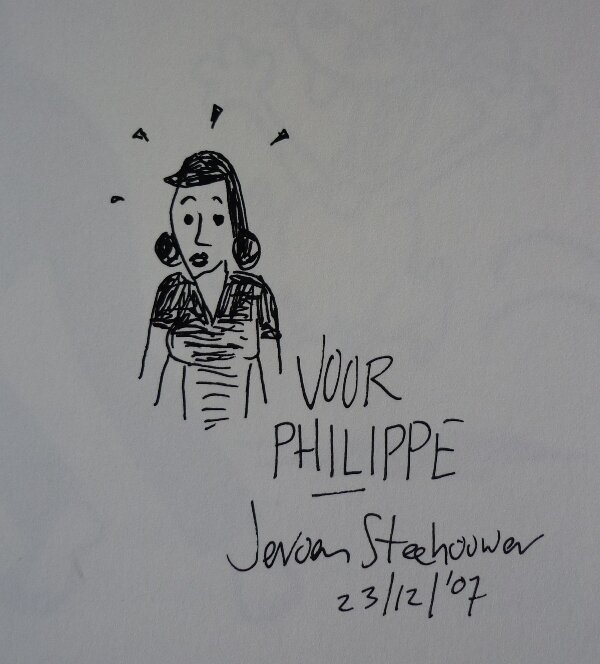 VOOR
PHILIPPE
Jeroen Steehouwer
23/12/'07